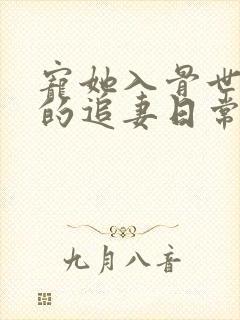 寵她入骨世
的追妻日常
九月八音